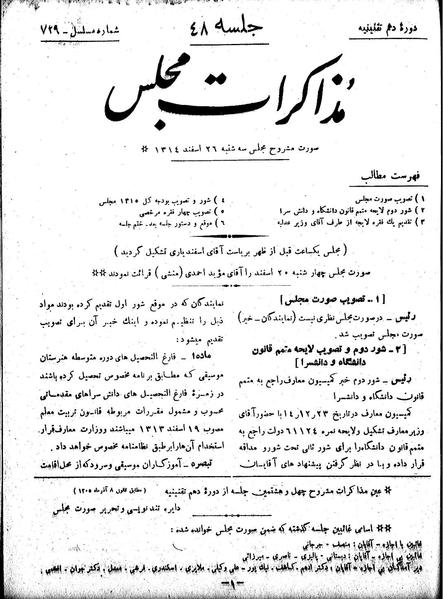 دورهٔ دهم تقنینیه
جلسه ۴۸
شماره مسلسل - ۷۲۹
مذاکرات مجلس
صورت مشروح مجلس سه شنبه ۲۶ اسفند ۱۳۱۴ *
فهرست مطالب
۱) تصویب صورت مجلس
۲) شور دوم لایحه متمم قانون دانشگاه و دانش سرا
۳) تقدیم یك فقره لایحه از طرف آقای وزیر عدلیه
۴) شور و تصویب بودجه کل ۱۳۱۵ مجلس
۵) تصویب چهار فقره مرخصی
۶) موقع و دستور جلسه بعد. ختم جلسه
( مجلس یکساعت قبل از ظهر بریاست آقای اسفندیاری تشکیل گردید )
صورت مجلس چهار شنبه ۲۰ اسفند را آقای مؤید احمدی (منشی) قرائت نمودند **
[ ۱ـ تصویب صورت مجلس ]
رئیس ـ درصورت مجلس نظری نیست (نمایندگان ـ خیر)
صورت مجلس تصویب شد.
[ ۲- شور دوم و تصویب لایحه متمم قانون
دانشگاه و دانشسرا ]
رئیس ـ شور دوم خبر کمیسیون معارف راجع به متمم
قانون دانشگاه و دانشسرا
کمیسیون معارف در تاریخ ۱۴/۱۲/۲۳ با حضور آقای
وزیر معارف تشکیل و لایحه نمره ۶۱۱۲۴ دولت راجع به
متمم قانون دانشگاه را برای شور ثانی تحت شور و مداقه
قرار داده و با در نظر گرفتن پیشنهاد های آقایان
نمایندگان که در موقع شور اول تقدیم کرده بودند مواد
ذیل را تنظیم نموده و اینك خبر آن برای تصویب
تقدیم میشود:
ماده۱ـ فارغ التحصیل های دوره متوسطه هنرستان
موسیقی که مطابق برنامه مخصوص تحصیل کرده باشند
در زمرهٔ فارغ التحصیل های دانش سراهای مقدماتی
محسوب و مشمول مقررات مربوطه قانون تربیت معلم
مصوب ۱۹ اسفند ۱۳۱۲ میباشند و وزارت معارف قرار
استخدام آن‌ها را بر طبق نظامنامه مخصوص خواهد داد.
تبصره ـ آموزگاران موسیقی و سرود که از محل اقامت
* عین مذاکرات مشروح چهل و هشتمین جلسه از دورهٔ دهم تقنینیه (مطابق قانون ۸ آذرماه ۱۳۰۵)
دایره تندنویسی و تحریر صورت مجلس
** اسامی غائبین جلسه گذشته که ضمن صورت مجلس خوانده شده:
غائبین با اجازه ـ آقایان:
غائبین بی اجازه ـ آقایان: دبستانی ـ پالیزی ـ ناصری ـ میرزائی
-۱-